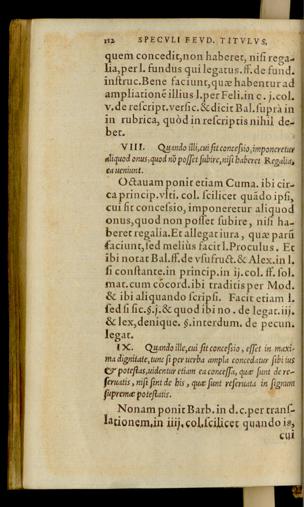 112 SPECVLI FEVD. TITVLVS,
quem concedit, non haberet, nisi rega-
lia, per l. fundus qui legatus. ff. de fund.
instruc. Bene faciunt, quæ habentur ad
ampliationē illius l. per Feli. in c. j. col.
v. de rescript. versic. & dicit Bal. suprà in
in rubrica, quòd in rescriptis nihil de-
bet.
VIII. Quando illi, cui fit concessio, imponeretur
aliquod onus, quod nō posset subire, nisi haberet Regalia,
ea veniunt.
Octauam ponit etiam Cuma. ibi cir-
ca princip. vlti. col. scilicet quādo ipsi,
cui fit concessio, imponeretur aliquod
onus, quod non posset subire, nisi ha-
beret regalia. Et allegat iura, quæ parū
faciunt, sed meliùs facit l. Proculus. Et
ibi notat Bal. ff. de vsufruct. & Alex. in l.
si constante. in princip. in ij. col. ff. sol.
mat. cum cōcord. ibi traditis per Mod.
& ibi aliquando scripsi. Facit etiam l.
sed si sic. §. j. & quod ibi no. de legat. iij.
& lex, denique. §. interdum. de pecun.
legat.
IX. Quando ille, cui fit concessio, esset in maxi-
ma dignitate, tunc si per verba ampla concedatur sibi ius
& potestas, videntur etiam ea concessa, quæ sunt de re-
seruatis, nisi sint de his, quæ sunt reseruata in signum
supremæ potestatis.
Nonam ponit Barb. in d. c. per trans-
lationem, in iiij. col. scilicet quando is,
cui